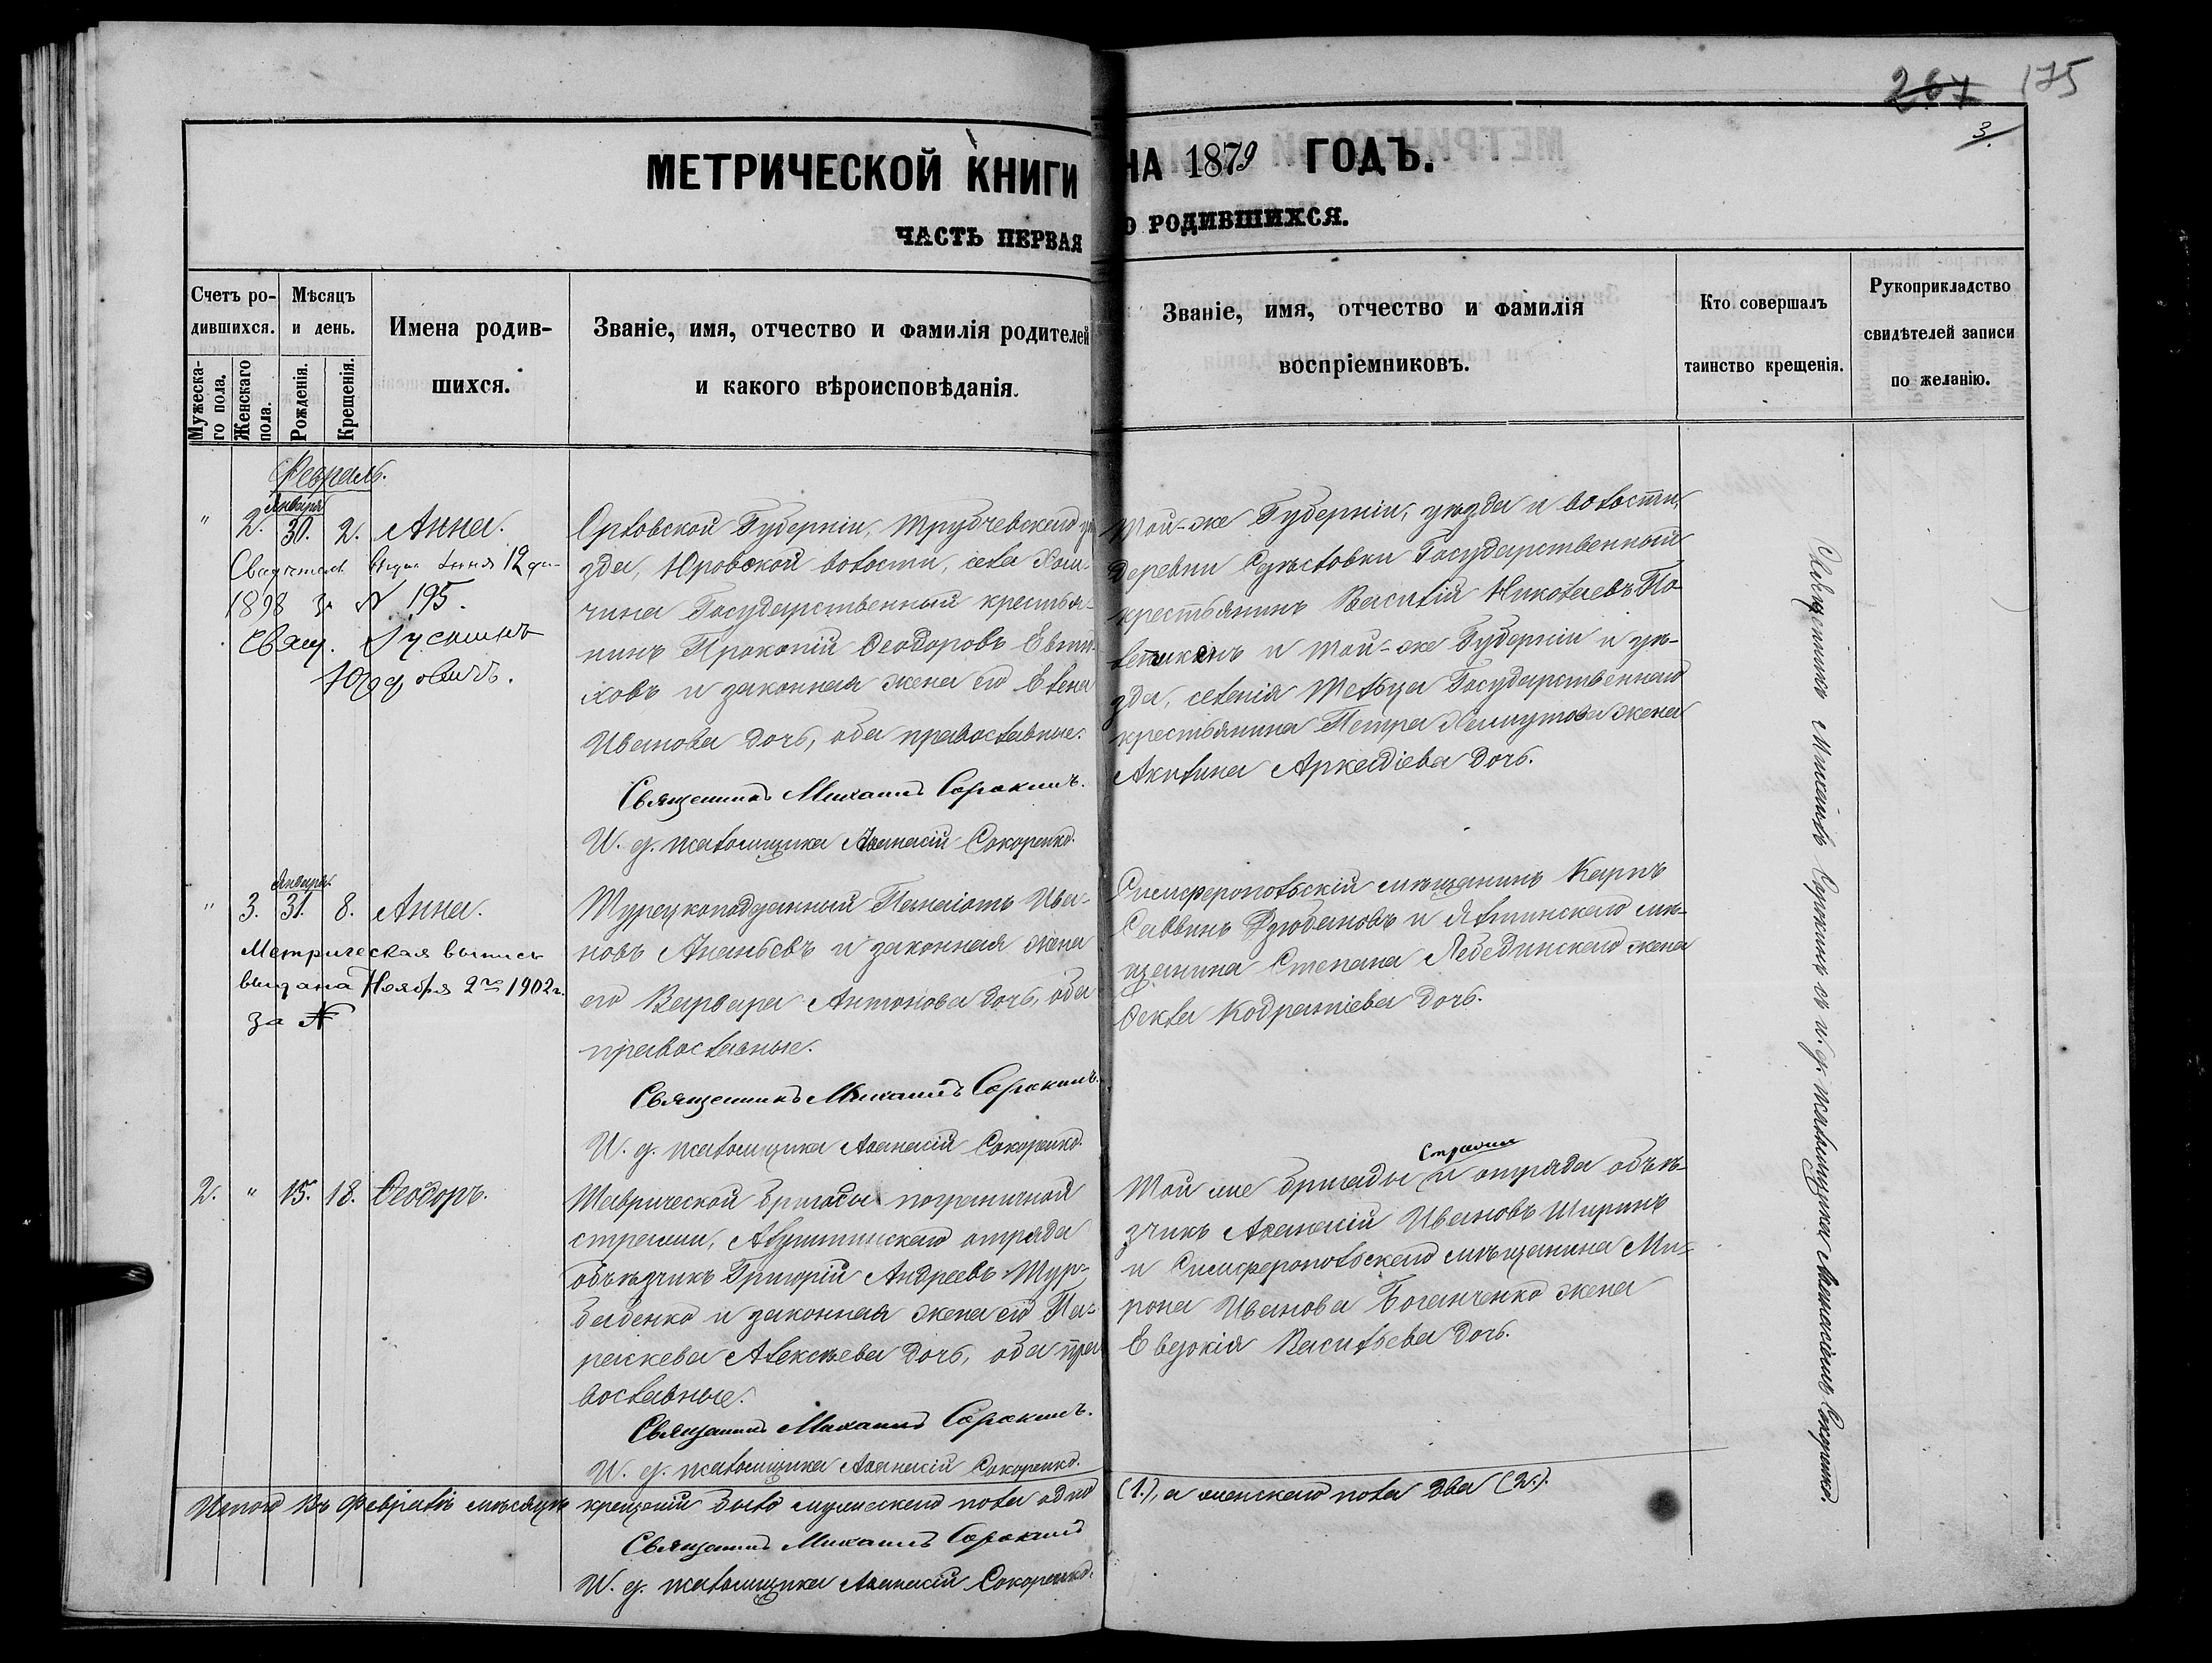 267 175
3.
МЕТРИЧЕСКОЙ КНИГИ НА 1879 ГОДЪ.
ЧАСТЬ ПЕРВАЯ О РОДИВШИХСЯ.
Счетъ ро-
дившихся.
Мужеска-
го пола.
Женскаго
пола.
Мѣсяцъ
и день.
Рожденія.
Крещенія.
Имена родив-
шихся.
Званіе, имя, отчество и фамилія родителей
и какого вѣроисповѣданія.
Званіе, имя, отчество и фамилія
воспріемниковъ.
Кто совершалъ
таинство крещенія.
Рукоприкладство
свидѣтелей записи
по желанію.
Февраль.
Января
" 2. 30. 2. Анна.
1898 за № 195.
Свящ.
Орловской Губерніи, Трубчевскаго уѣ
зда, Юровской волости, села Хал-
чина Государственный крестья-
нинъ Прокопій Ѳеодоровъ Евти-
ховъ и законная жена его Елена
Иванова дочь, оба православные.
Священникъ Михаилъ Сорокинъ.
И. д. псаломщика Аѳанасій Сокоренко.
Той-же Губерніи, уѣзда и волости,
деревни Государственный
крестьянинъ Василій Николаевъ По-
и той-же Губерніи и уѣ-
зда, селенія Тельца Государственнаго
крестьянина Петра жена
Акилина Аркадіева дочь.
Января
" 3. 31. 8. Анна.
Метрическая выпись
выдана Ноября 2го 1902 г.
за №
Турецкоподданный Панаіотъ Ива-
новъ Ананьевъ и законная жена
его Варвара Антонова дочь, оба
православные.
Священникъ Михаилъ Сорокинъ.
И. д. псаломщика Аѳанасій Сокоренко.
Симферопольскій мѣщанинъ Карпъ
Саввинъ Дзюбановъ и Ялтинскаго мѣ-
щанина Степана Лебединскаго жена
Ѳекла Кодратіева дочь.
2. " 15. 18. Ѳеодоръ.
Таврической бригады пограничной
стражи, Алуштинскаго отряда
объѣзчикъ Григорій Андреевъ Тур-
бабенко и законная жена его Па-
раскева Алексѣева дочь, оба пра
вославные.
Священникъ Михаилъ Сорокинъ.
И. д. псаломщика Аѳанасій Сокоренко.
Стражи
Той же бригады и отряда объѣ-
зчикъ Аѳанасій Ивановъ Ширинъ
и Симферопольскаго мѣщанина Ми-
рона Иванова Боганченко жена
Евдокія Васильева дочь.
Священникъ Михаилъ Сорокинъ съ и. д. псаломщика Аѳанасіемъ Сокоренко.
Итого въ Февралѣ мѣсяцѣ крещеній было мужескаго пола одно (1.), а женскаго пола два (2.).
Священникъ Михаилъ Сорокинъ
И. д. псаломщика Аѳанасій Сокоренко.